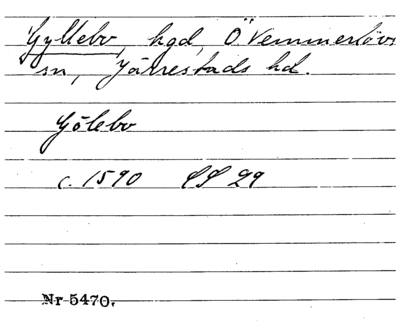 Gyllebo, hgd, Ö Vemmerlövs
sn, Järrestads hd.
Gölebo
c. 1590 SS 29
Nr 5470.